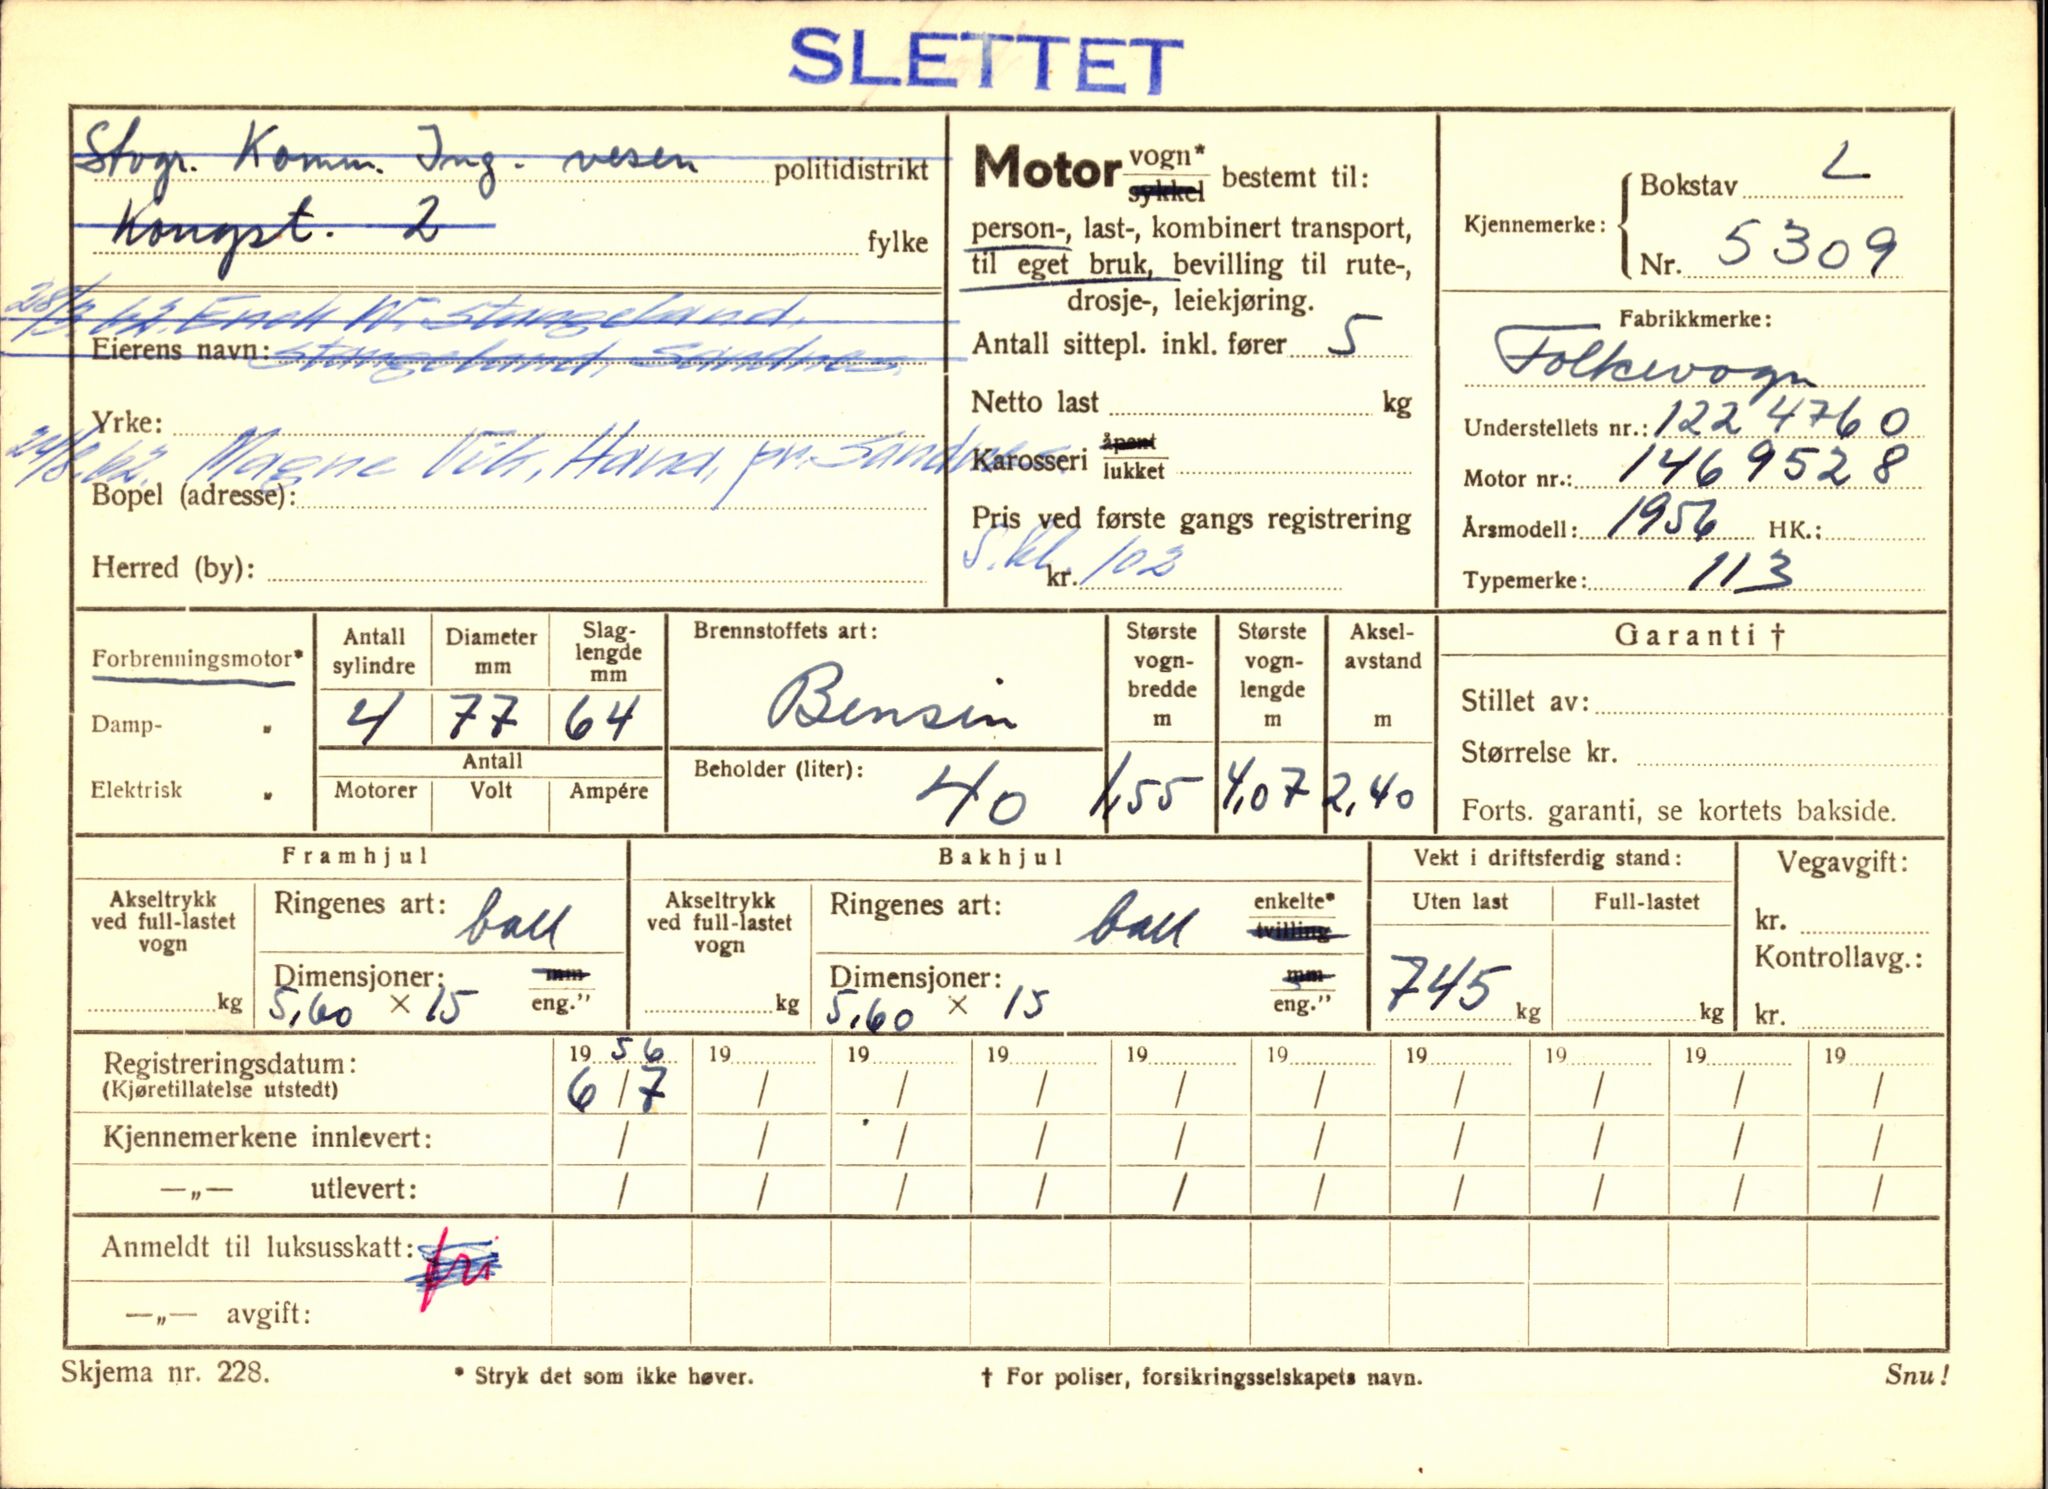 SLETTET
Stvgr. Komm. Ing. vesen politidistrikt
Kongst. 2 fylke
28/3 62. W. Stangeland.
Eierens navn: Stangeland, Sandnes.
Yrke:
24/8.62. Magne Vik, Hana, pr. Sandnes.
Bopel (adresse):
Herred (by):
Motor vogn* sykkel bestemt til:
person-, last-, kombinert transport,
til eget bruk, bevilling til rute-,
drosje-, leiekjøring.
Antall sittepl. inkl. fører 5
Netto last kg
Karosseri åpent lukket
Pris ved første gangs registrering
S.kl. kr. 102
Kjennemerke: Bokstav L
Nr. 5309
Fabrikkmerke:
Folkevogn
Understellets nr.: 1224760
Motor nr.: 1469528
Årsmodell: 1956 HK.:
Typemerke: 113
Forbrenningsmotor*
Damp- „
Elektrisk „
Antall sylindre
4
Diameter mm
77
Slag-
lengde
mm
64
Antall
Motorer Volt Ampére
Brennstoffets art:
Bensin
Beholder (liter): 40
Største
vogn-
bredde
m
1,55
Største
vogn-
lengde
m
4,07
Aksel-
avstand
m
2,40
Garanti †
Stillet av:
Størrelse kr.
Forts. garanti, se kortets bakside.
Framhjul
Akseltrykk
ved full-lastet
vogn
kg
Ringenes art: ball
Dimensjoner: mm
5,60 × 15 eng."
Bakhjul
Akseltrykk
ved full-lastet
vogn
kg
Ringenes art: ball enkelte* tvilling
Dimensjoner: mm
5,60 × 15 eng."
Vekt i driftsferdig stand:
Uten last Full-lastet
745 kg kg
Vegavgift:
kr.
Kontrollavg.:
kr.
Registreringsdatum: 19 56 19 19 19 19 19 19 19 19 19
(Kjøretillatelse utstedt) 6 / 7 / / / / / / / / /
Kjennemerkene innlevert: / / / / / / / / / /
—„— utlevert: / / / / / / / / / /
Anmeldt til luksusskatt: fri
—„— avgift:
Skjema nr. 228. * Stryk det som ikke høver. † For poliser, forsikringsselskapets navn. Snu!